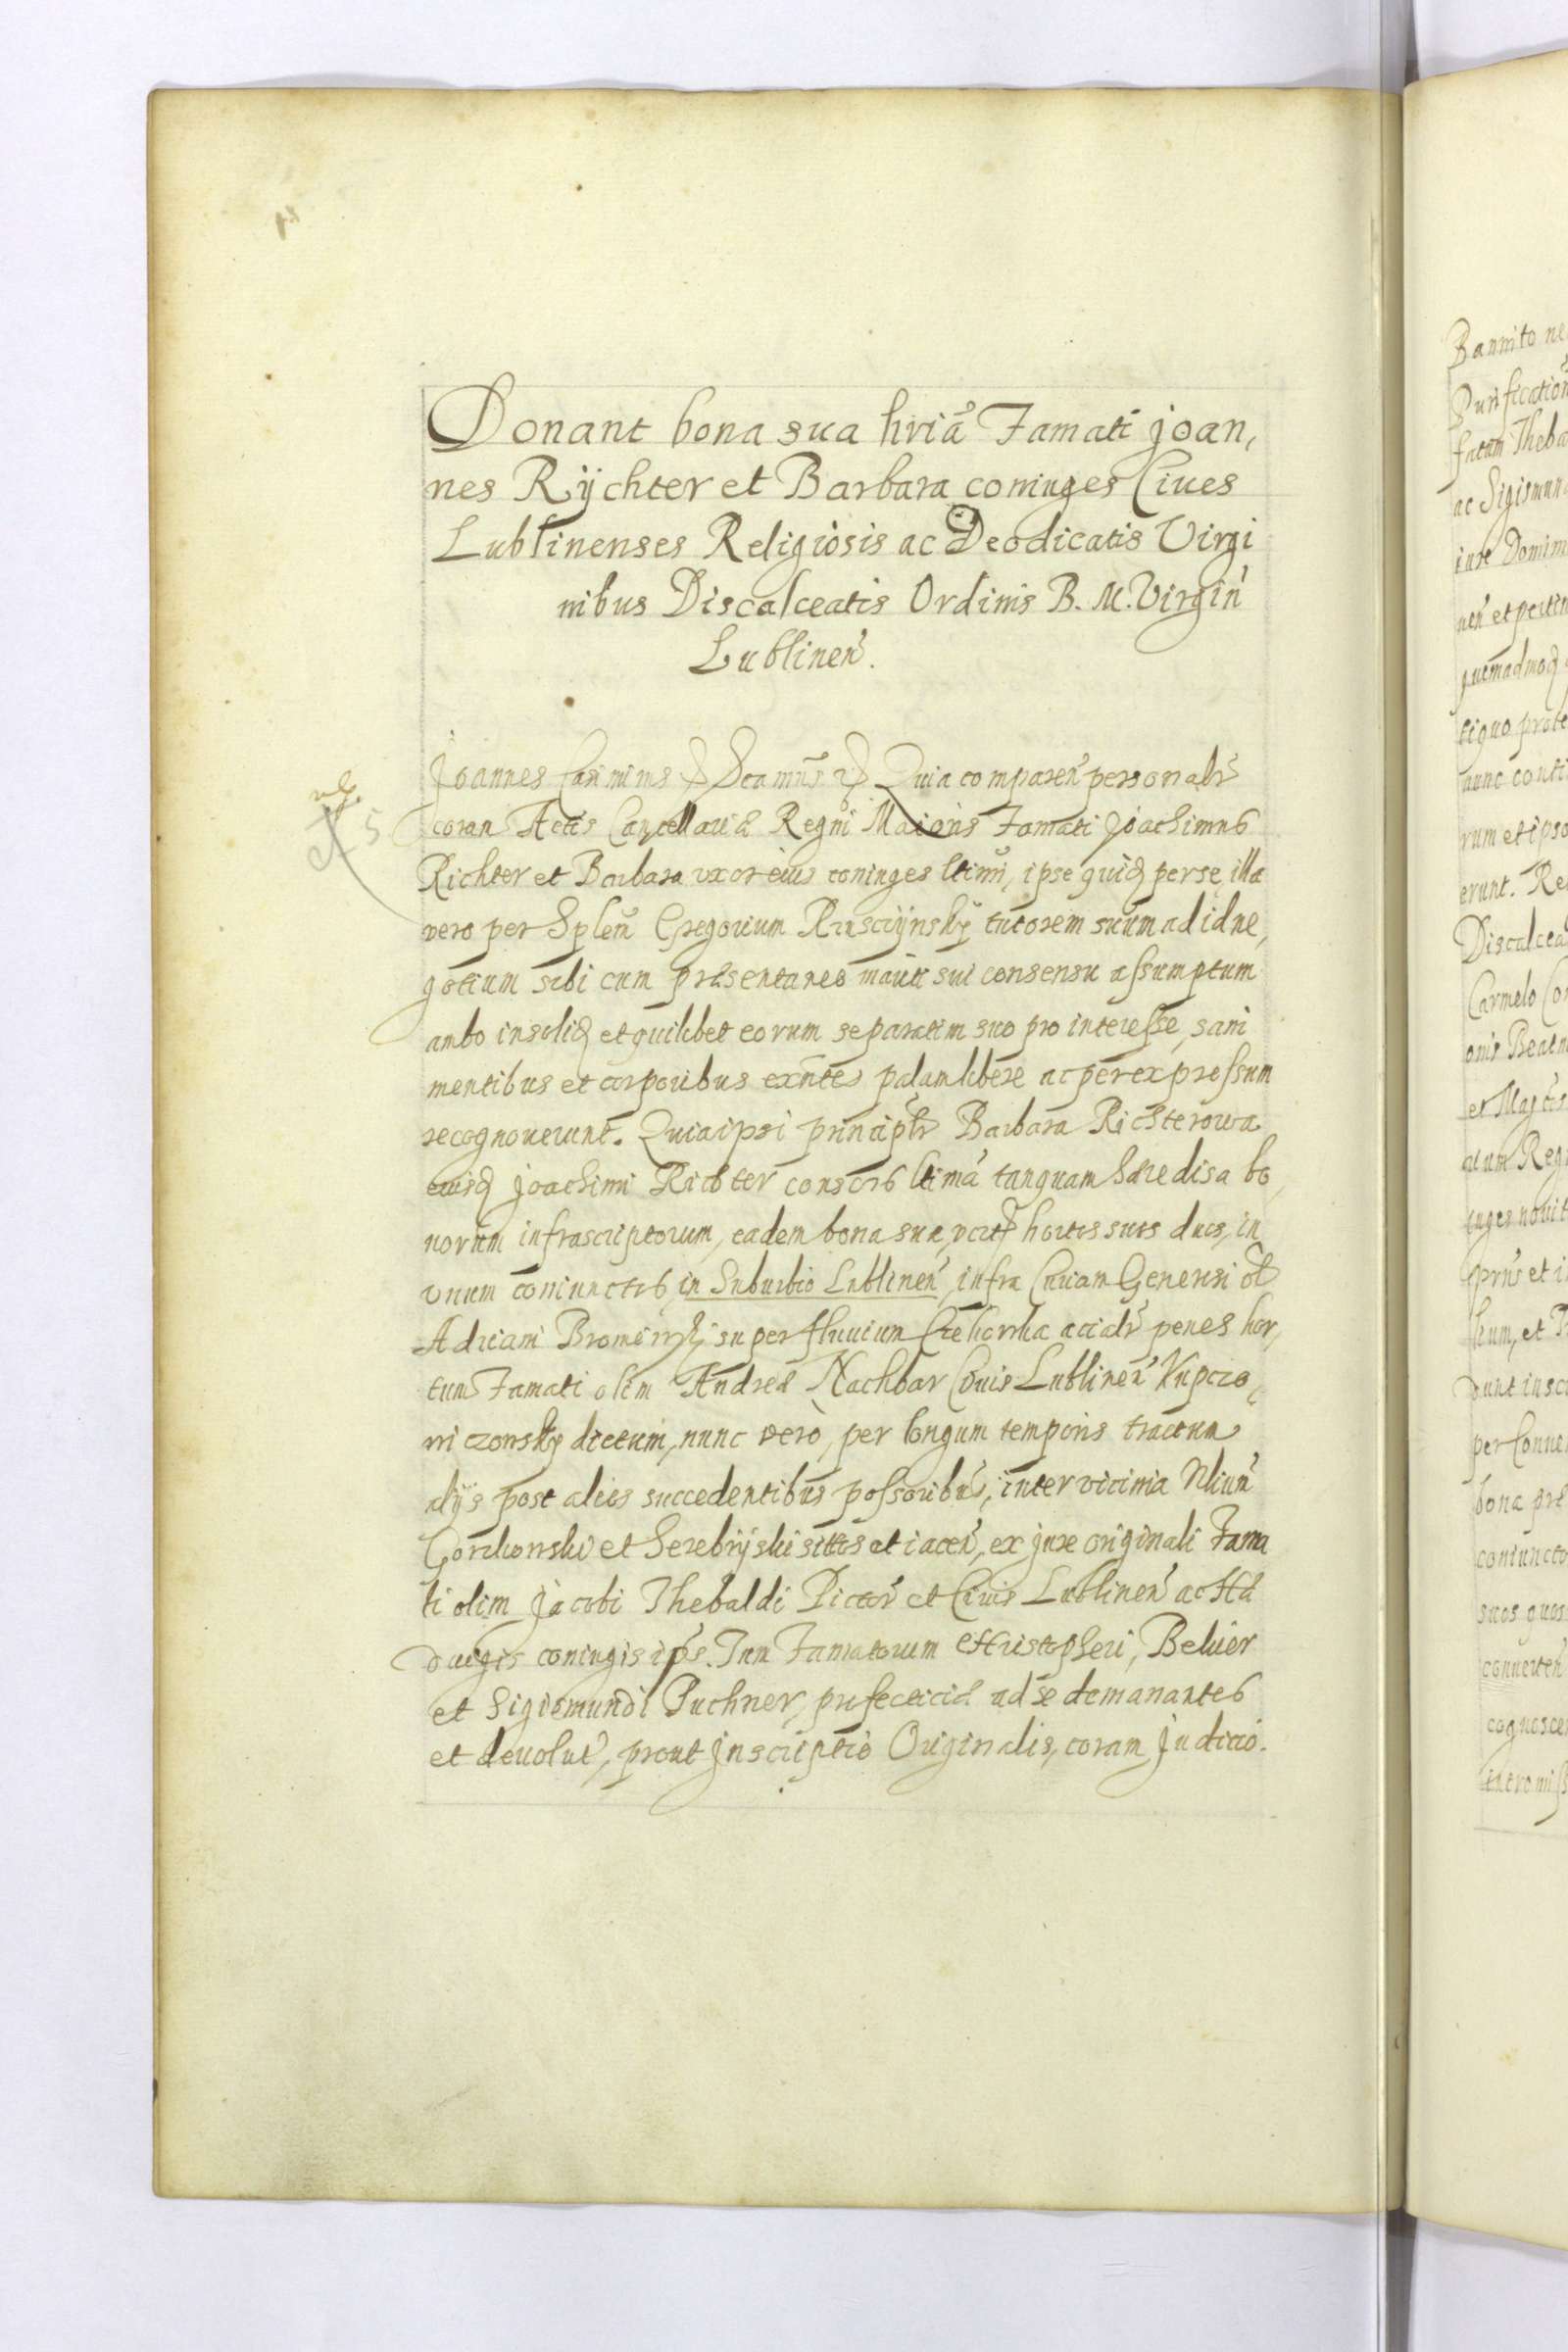 Donant bona sua hriã Famati Joan,
nes Rÿchter et Barbara coniuges Ciues
Lublinenses Religiosis ac Deodicatis Virgi
nibus Discalceatis Ordinis B. M. Virgin
Lublinen.
Joannes Casimirus Quia comparen personalr
coram Actis Cancellariæ Regni Maioris Famati Joachimus
Richter et Barbara uxor eius coniuges ltimi, ipse quid per se, illa
vero per Gregorium tutorem suum ad id ne,
gotium sibi cum præsentaneo mariti sui consensu assumptum
ambo insolid et quilibet eorum separatim suo pro interesse, sani
mentibus et corporibus exntes palam libere ac per expressum
recognouerunt. Quia ipsi principlr Barbara Richterowa
eiusd Joachimi Richter consors ltima tanquam hæredisa bo,
norum infrascriptorum, eadem bona sua, hortos suos duos, in
unum coniunctos, in Suburbio Lublinen, infra Generosi ol
Adriani super fluuium penes hor,
tum Famati olim Andreæ Nachbar Ciuis Lublinen Kupczo,
wi czonsky dictum, nunc verò, per longum temporis tractum
alijs post alios succedentibus possoribus, inter vicinia
et Serebrÿski sitos et iacen, ex jure originali Fama
ti olim Jacobi Thebaldi Pictor et Ciuis Lublinen ac Hæ
duigis coniugis Famatorum Christopheri, Beluier
et Sigismundi Puchner, ad se demanantes
et deuolut, prout Jnscriptio Originalis, coram Judicio
Bannito ne
Purification
fatum Theba
ac Sigismun
iure Domini
nen et pertin
quemadmod
nunc conti
rum et ipso
erunt. Re
Discalcea
Carmelo Con
onis Beatæ
per Conue
bona præ
coniuncto
suos quos
conuerten
cognosce
intromiss